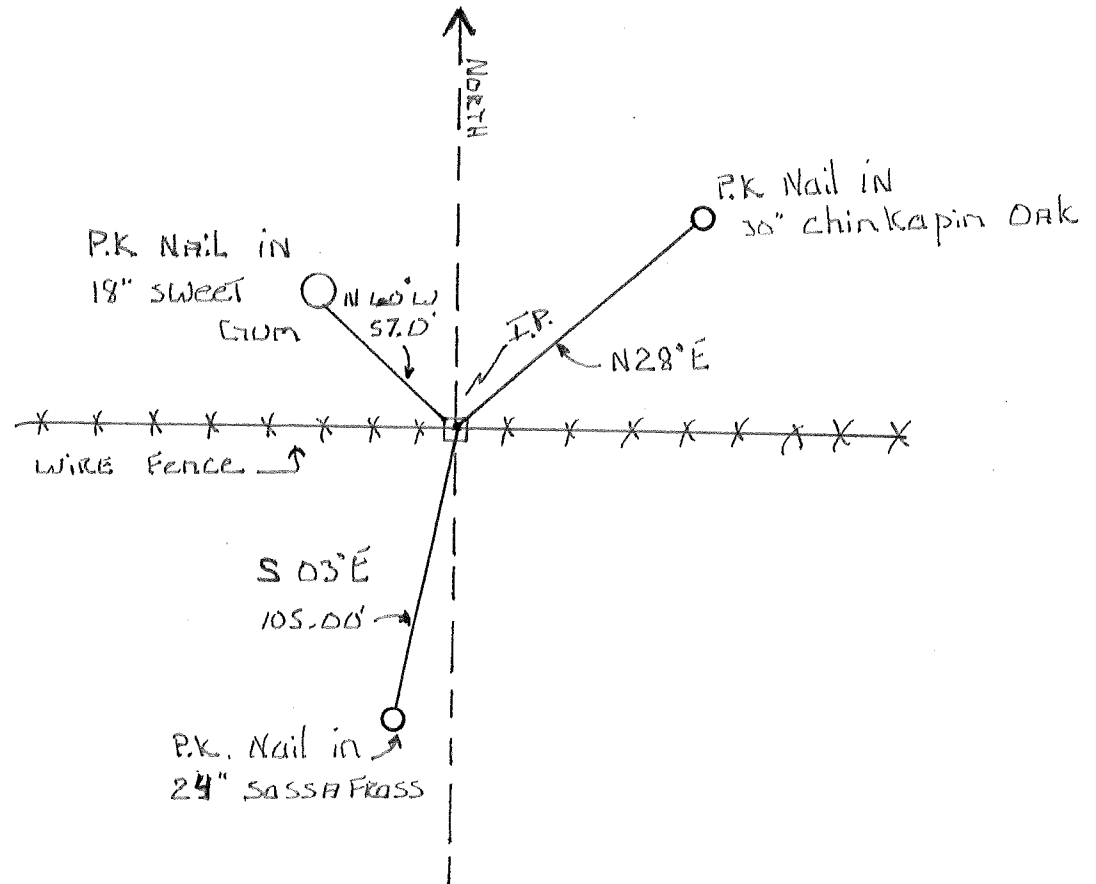 NORTH
P.K Nail iN
30" chinkapin OAK
P.K NAiL iN
18" sweet
Gum
N 60° W
57.0'
I.P.
N28°E
WIRE Fence
S 03°E
105.00'
P.K. Nail in
24" SassaFrass